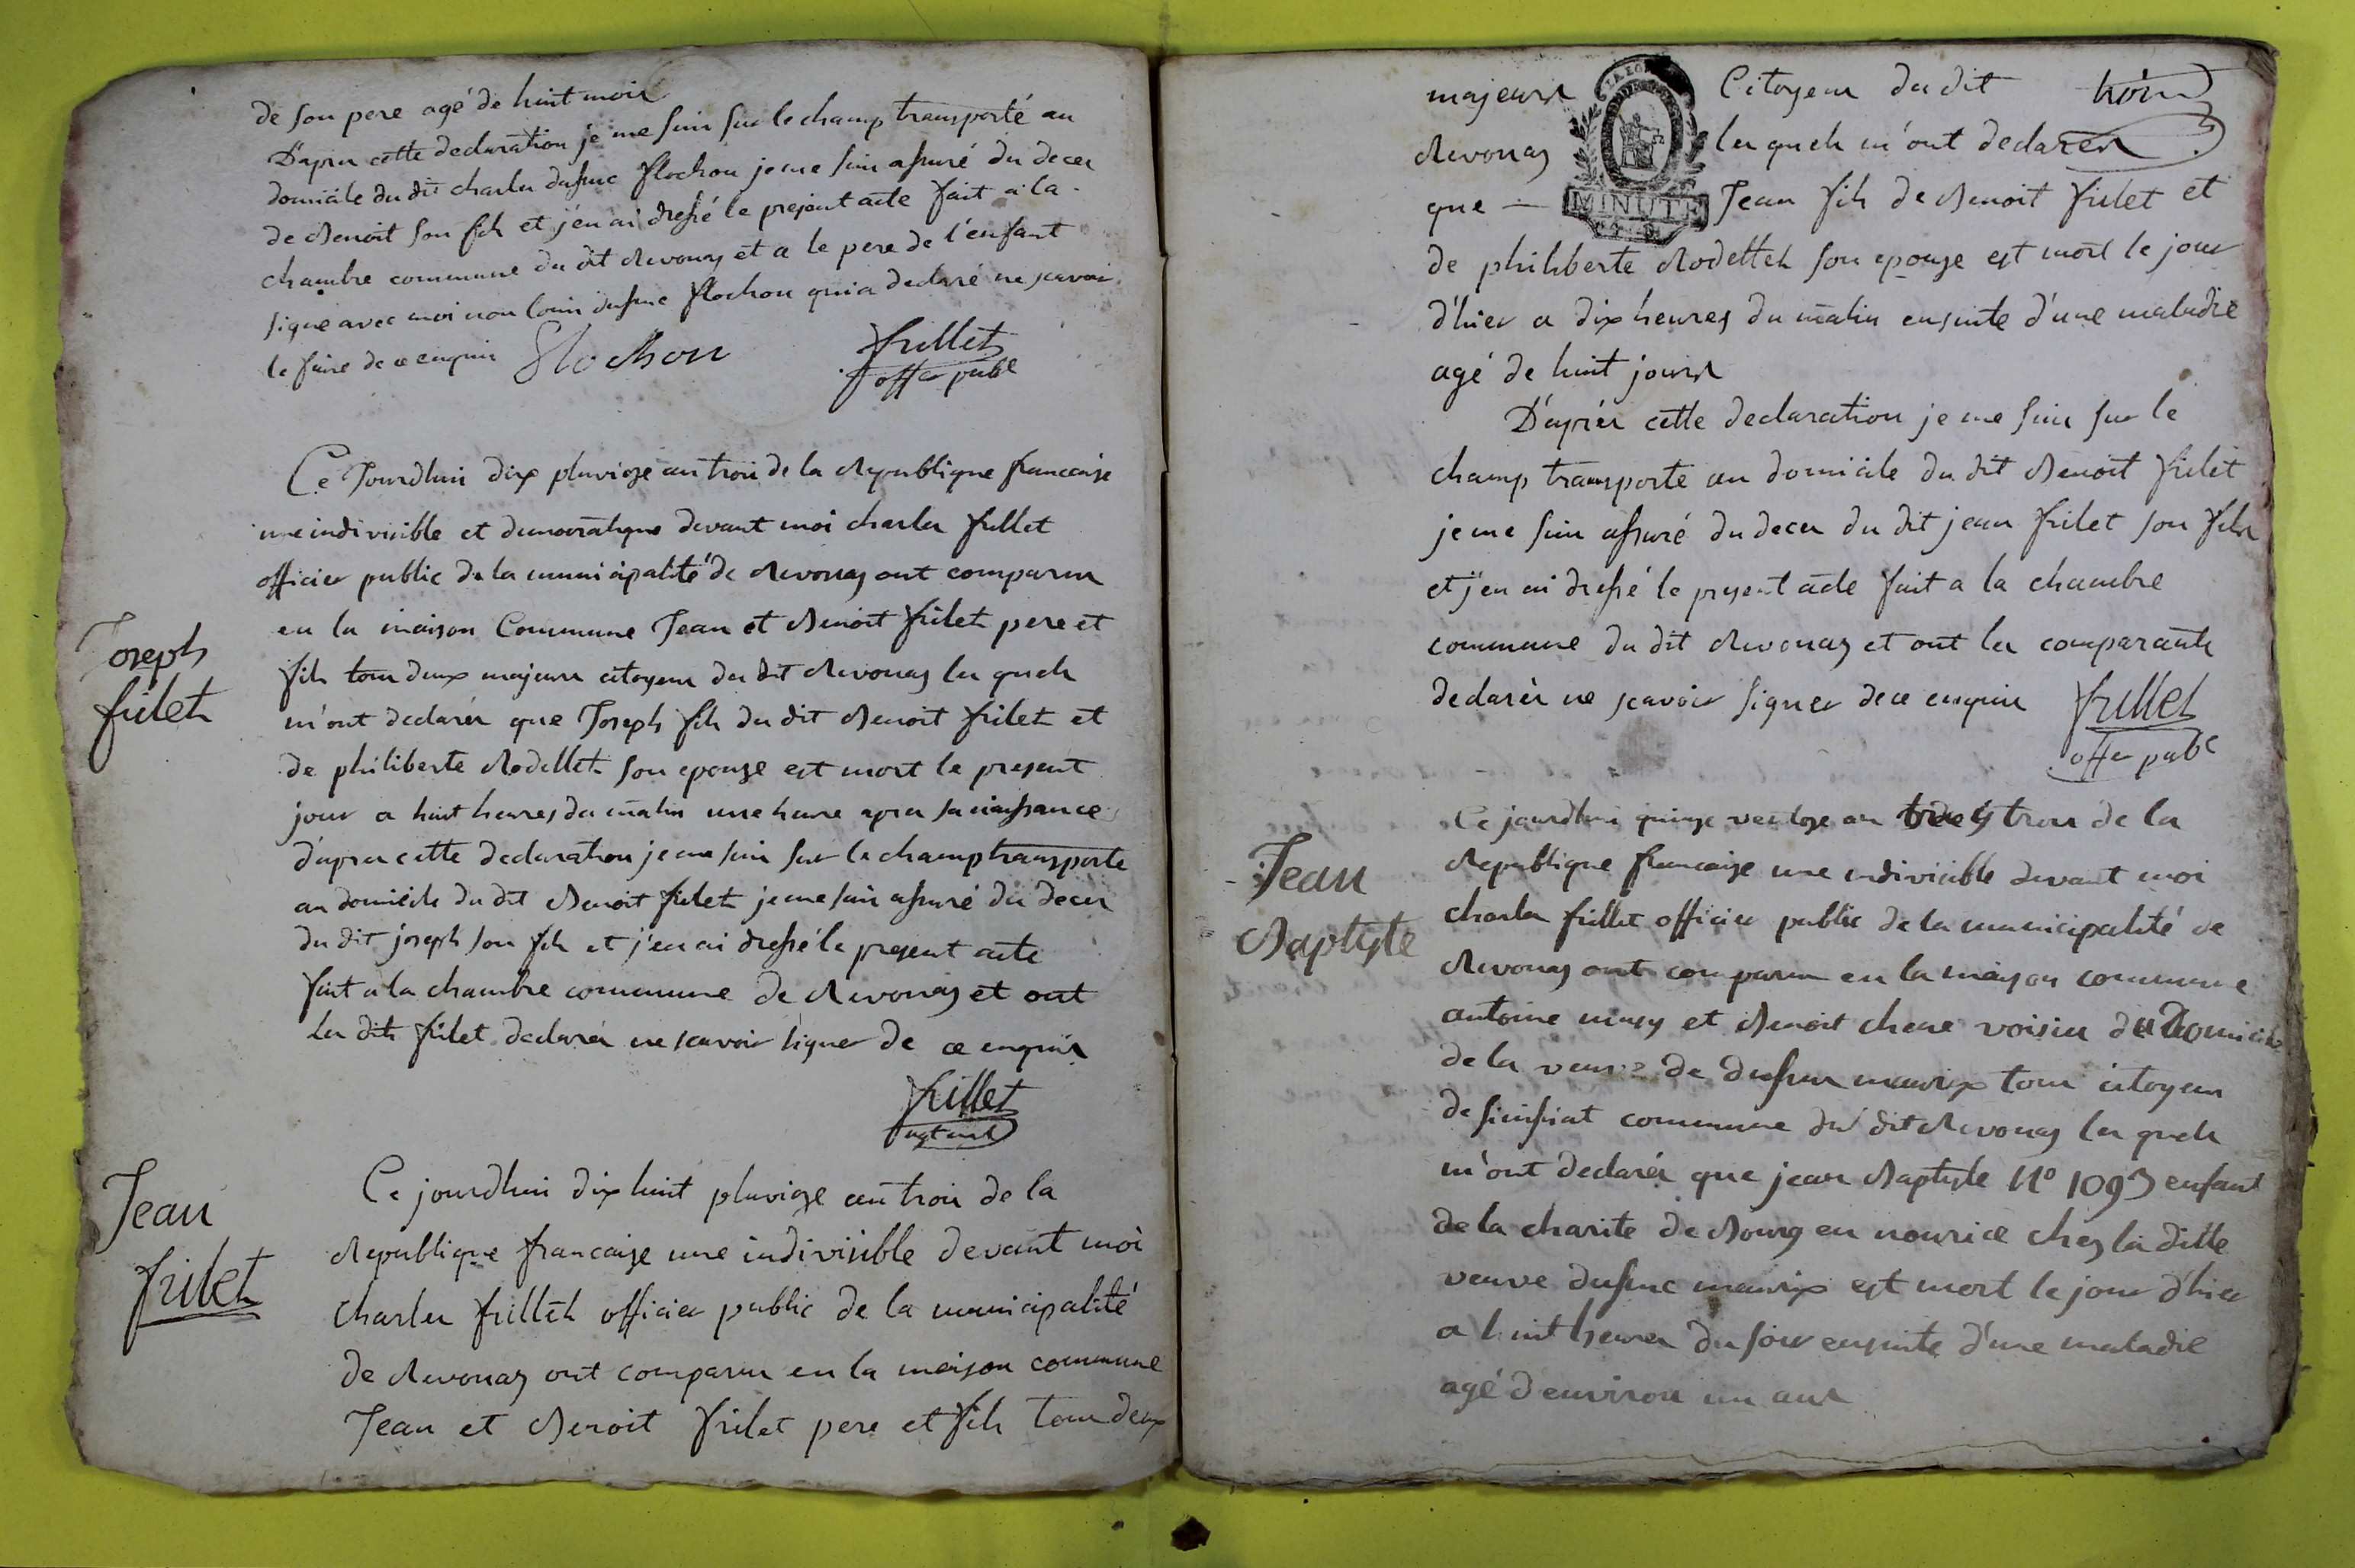 de son pere agé de huit mois
D'aprer cette declaration je me suis sur le champ transporté au
domicile du dit charles dufour flochon je me suis assuré du deces
de Benoit son fils et j'en ai dressé le present acte fait a la
chambre commune du dit Revonas et a le pere de l'enfant
signé avec moi non louis flochon qui a declaré ne scavoir
le faire de ce enquis Flochon frillet
offer publ
Ce Jourdhui dix pluviose an trois de la Republique francaise
une indivisible et democratique devant moi charles frillet
officier public de la municipalité de Revonas ont comparu
en la maison Commune Jean et Benoit frilet pere et
fils tous deux majeurs citoyens du dit Revonas les quels
m'ont declarés que Joseph fils du dit Benoit frilet et
de philiberte Rodellet son epouse est mort le present
jour a huit heures du matin une heure apres sa naissance
d'apres cette declaration je me suis sur le champ transporte
au domicile du dit Benoit frilet je me suis assuré du deces
du dit joseph son fils et j'en ai dressé le present acte
fait a la chambre commune de Revonas et ont
les dits frilet declarés ne scavoir signer de ce enquis
frillet
Joseph
frilet
Jean
frilet
Ce jourdhui dix huit pluviose an trois de la
Republique francaise une indivisible devant moi
Charles frillet officier public de la municipalité
de Revonas ont comparu en la maison commune
Jean et Benoit frilet pere et fils tous deux
majeurs Citoyens du dit
Revonas les quels m'ont declarés
que — MINUTE Jean fils de Benoit frilet et
de philiberte Rodettet son epouse est mort le jour
d'hier a dix heures du matin ensuite d'une maladie
agé de huit jours
D'aprés cette declaration je me suis sur le
champ transporte au domicile du dit Benoit frilet
je me suis assuré du deces du dit jean frilet son fils
et j'en ai dressé le present acte fait a la chambre
commune du dit Revonas et ont les comparants
declarés ne scavoir signer de ce enquis frillet
offer publ
Jean
Baptyste
Ce jourdhui quinze ventose an trois de la
Republique francaise une indivisible devant moi
charles frillet officier public de la municipalité de
Revonas ont comparu en la maison commune
antoine et Benoit chene voisins du domicile
de la veuve de tous citoyens
de simsiat commune du dit Revonas les quels
m'ont declarés que jean Baptyste N° 1093 enfant
de la charite de Bourg en nourice chez la ditte
veuve est mort le jour d'hier
a huit heures du soir ensuite d'une maladie
agé d'environ un ans